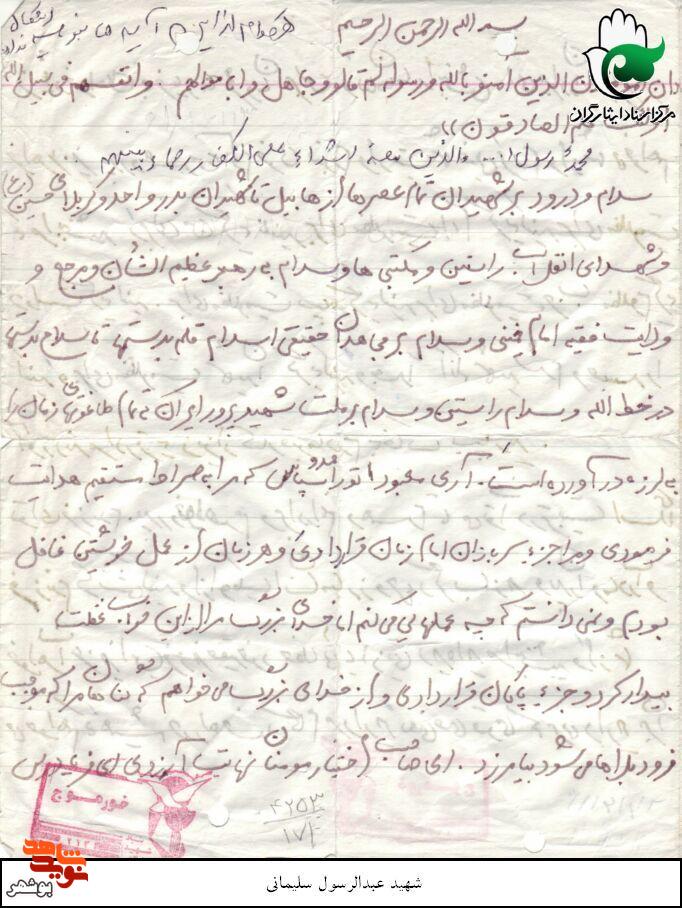 بسم الله الرحمن الرحیم
هرکدام از این آیه ها بنویسید اشکال ندارد
الذین آمنو بالله و رسوله ثم و جاهدو با موالهم و انفسهم فی سبیل الله
هم الصادقون))
محمد رسول ا... والذین معه اشداء علی الکفار رحماء بینهم
سلام و درود بر شهیدان تمام عصرها از هابیل تا شهیدان بدر و احد و کربلای حسین (ع)
و شهدای انقلاب راستین و مکتبی ها و سلام به رهبر عظیم الشأن و مرجع و
ولایت فقیه امام خمینی و سلام بر مجاهدان حقیقی اسلام قلم بدستها تا سلاح بدستها
در خط الله و سلام راستین و سلام بر ملت شهید پرور ایران که تمام طاغوتهای زمان را
به لرزه در آورده است. آری معبودا تو را سپاس که مرا به صراط مستقیم هدایت
فرمودی و مرا جزء سربازان امام زمان قرار دادی و هر زمان از عمل خویشتن غافل
بودم و نمی دانستم که چه عملهایی می کنم اما خدای بزرگ مرا از این خواب غفلت
بیدار کرد و جزء پاکان قرار دادی و از خدای بزرگ می خواهم که گناهان مرا که موجب
فرود بلاها می شود بیامرزد. ای صاحب اختیار مومنان نهایت آرزوی ای فریادرس
خورموج
۴۲۵۳
۱۷
مرکز اسناد ایثارگران
نوید شاهد
بوشهر
شهید عبدالرسول سلیمانی